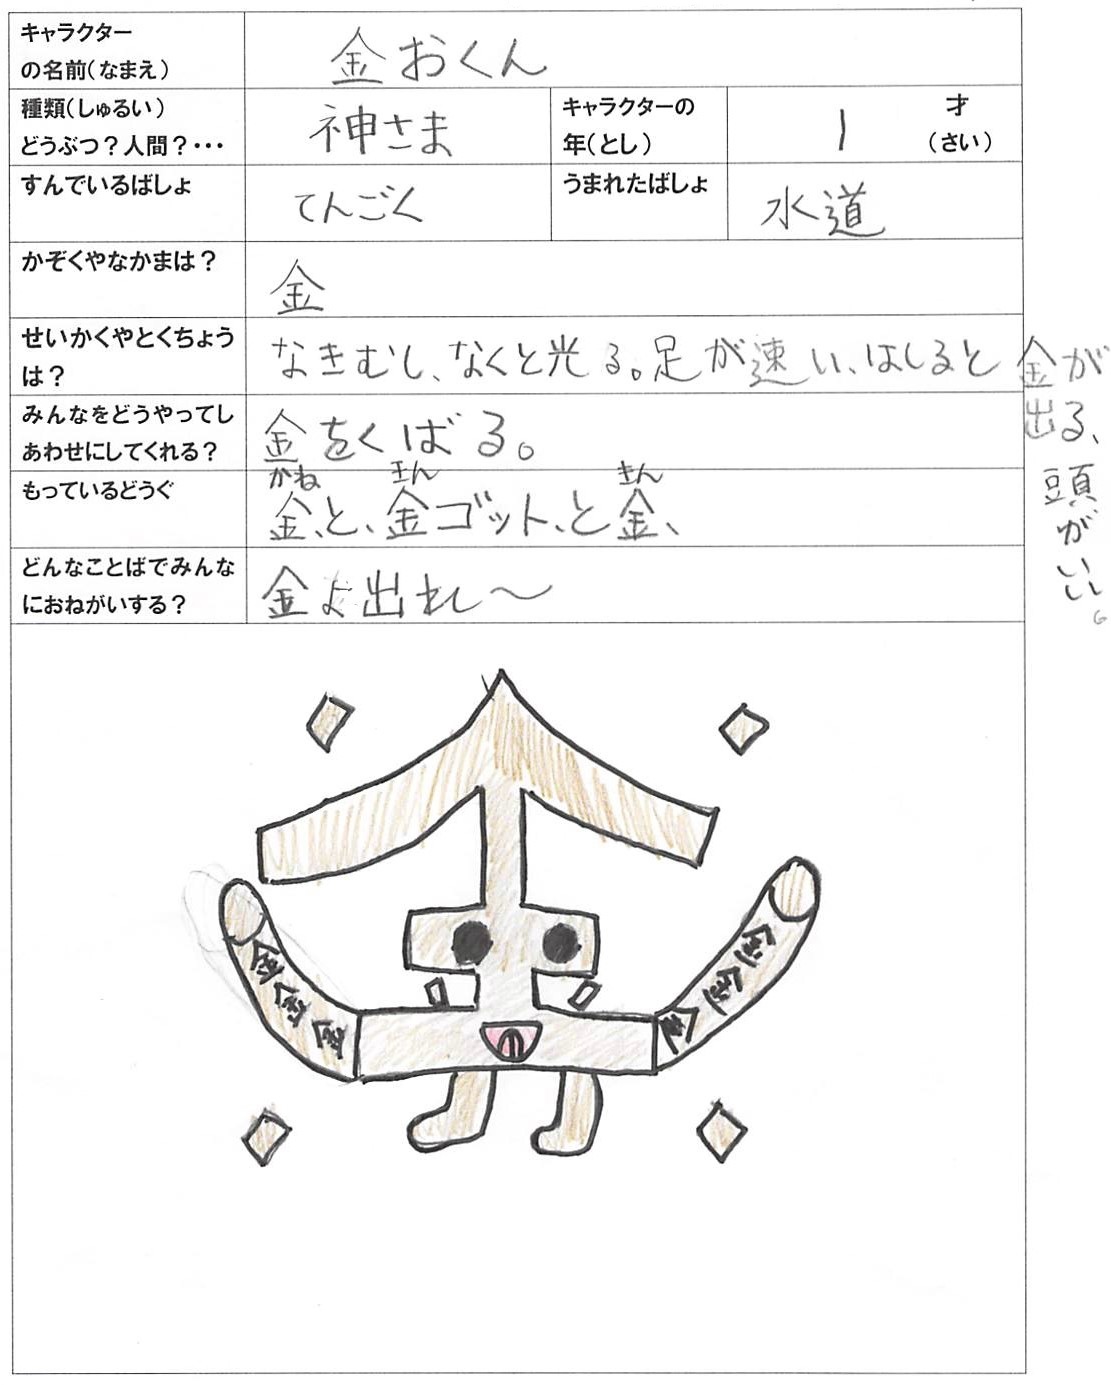 キャラクター
の名前(なまえ)
金おくん
種類(しゅるい)
どうぶつ?人間?・・・
神さま
キャラクターの
年(とし)
1
才
(さい)
すんでいるばしょ
てんごく
うまれたばしょ
水道
かぞくやなかまは?
金
せいかくやとくちょう
は?
なきむし、なくと光る。足が速い、はしると金が
出る、
頭
が
い
い。
みんなをどうやってし
あわせにしてくれる?
金をくばる。
もっているどうぐ
かね きん きん
金、と、金ゴット、と金、
どんなことばでみんな
におねがいする?
金よ出れ〜
金金金
金金金